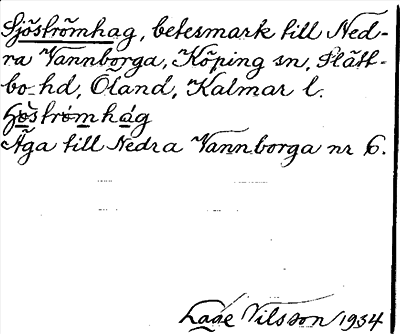 Sjöströmhag, betesmark till Ned-
ra Vannborga, Köping sn, Slätt-
bo hd, Öland, Kalmar l.
Äga till Nedra Vannborga nr 6.
Nilsson 1934